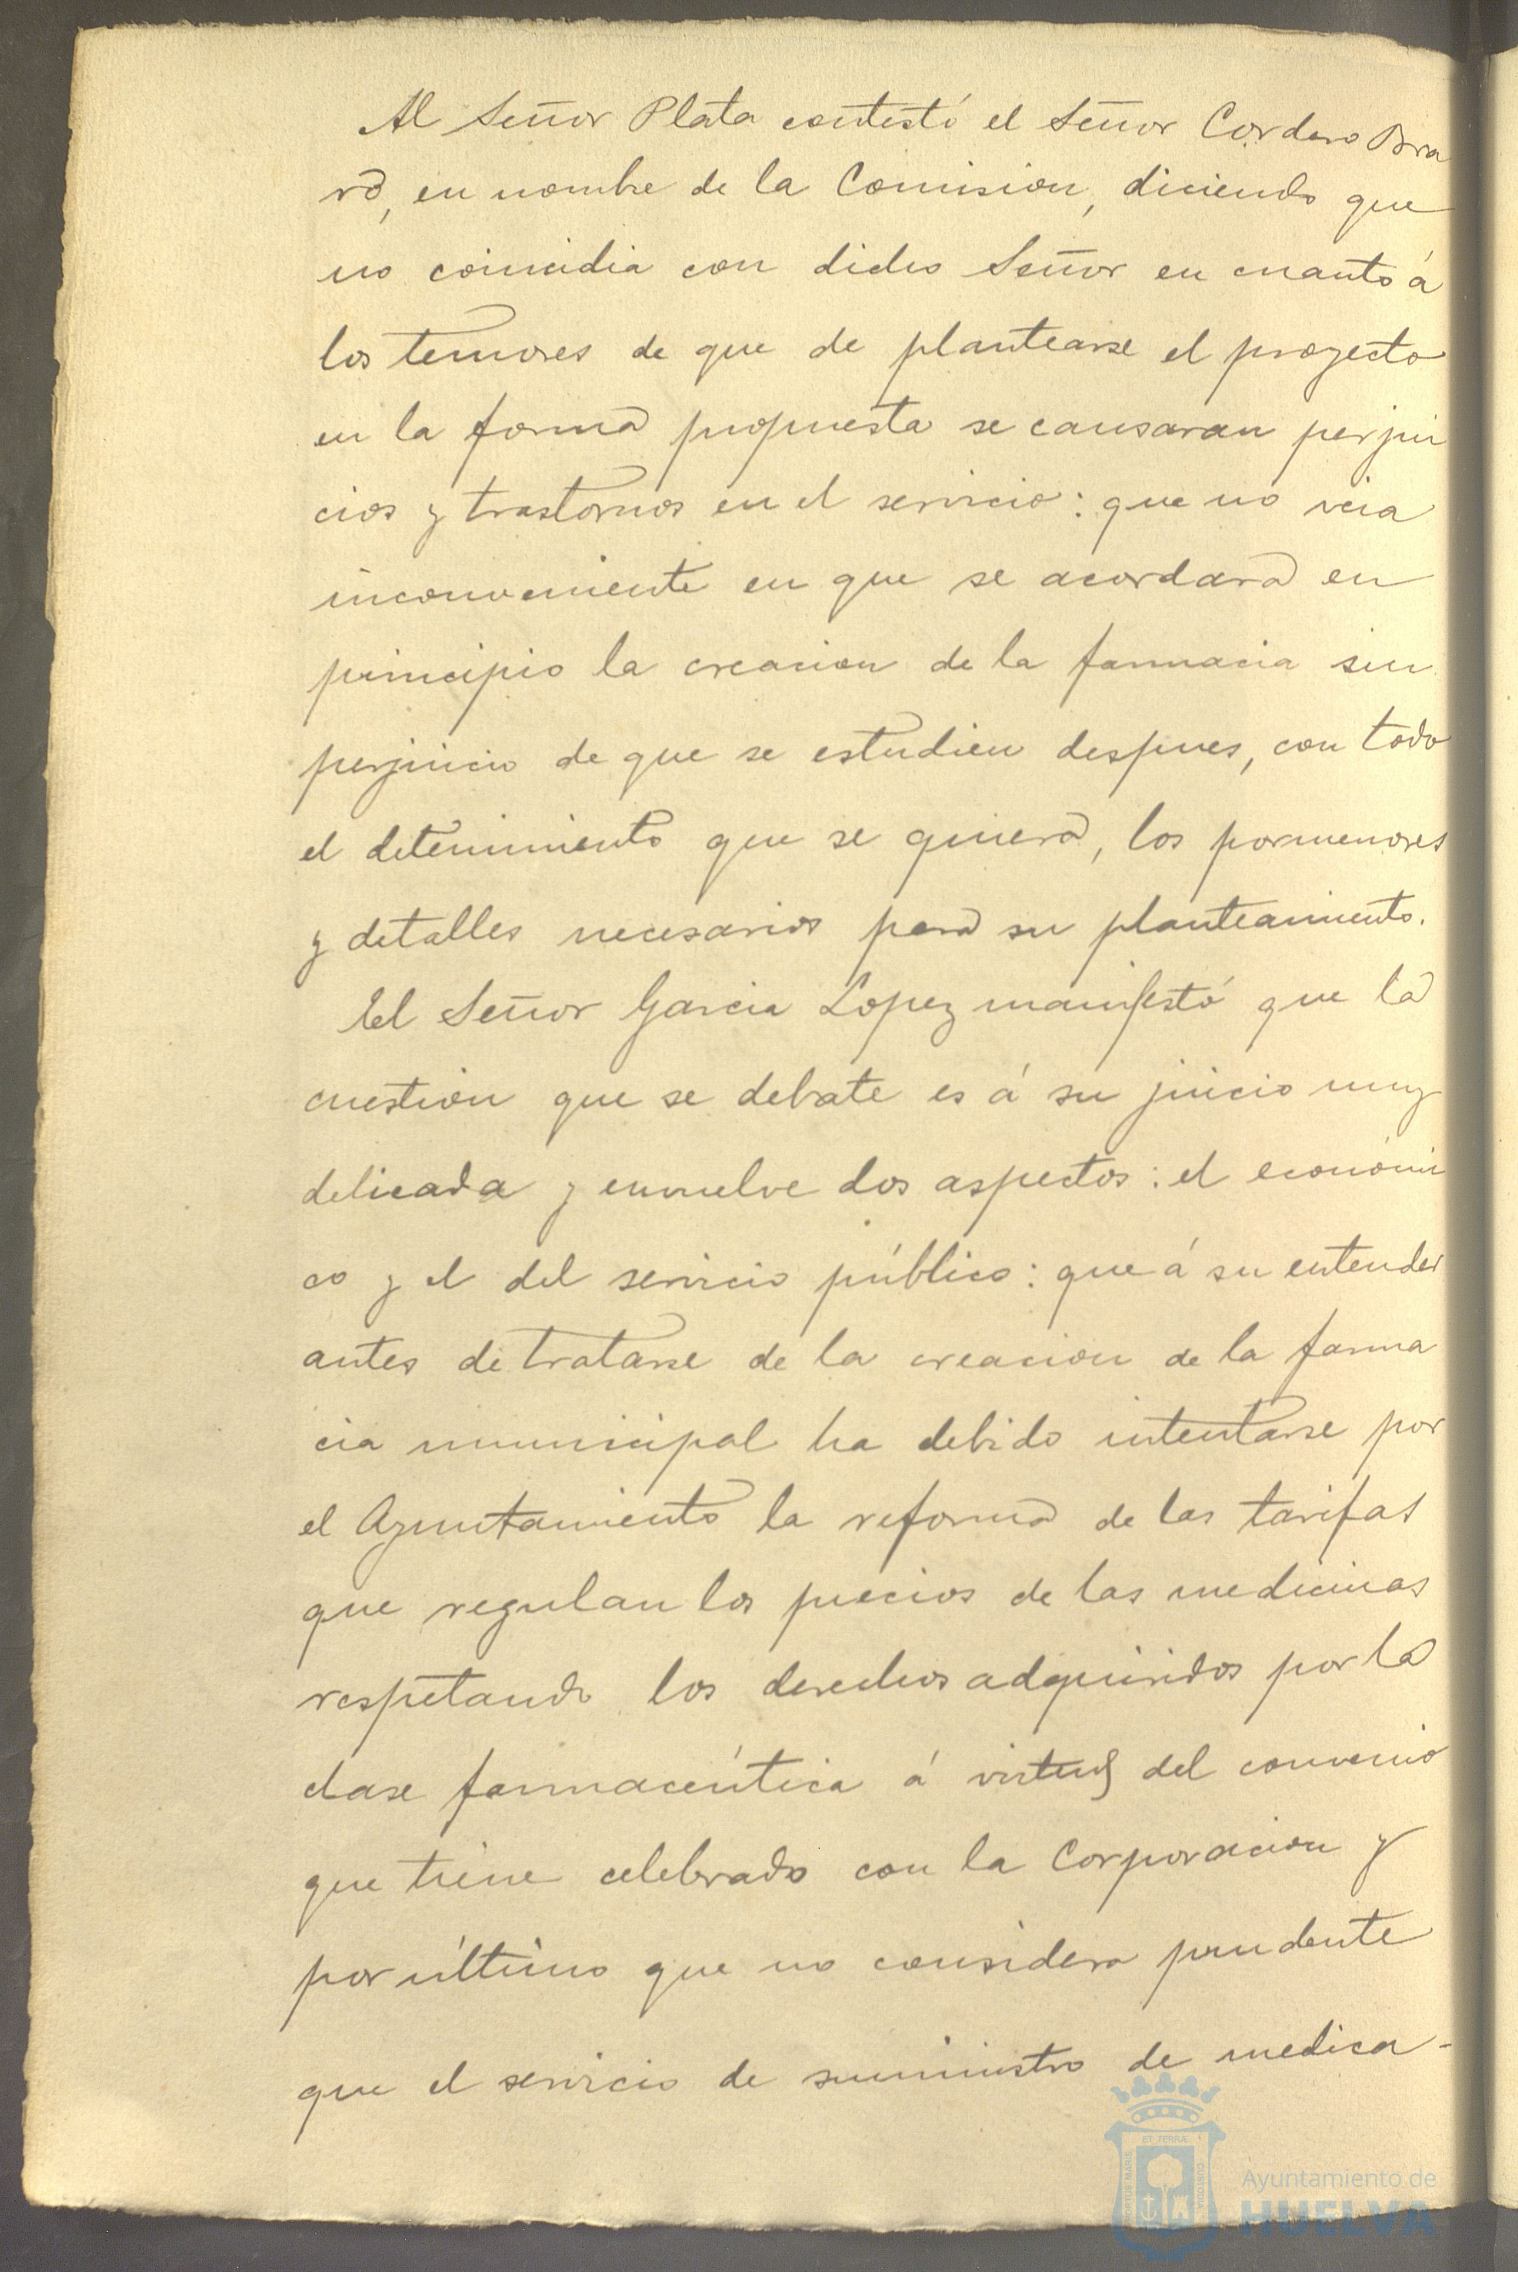 Al Señor Plata contestó el Señor Cordero Bra
vo, en nombre de la Comision, diciendo que
no coincidia con dicho Señor en cuanto á
los temores de que de plantearse el proyecto
en la forma propuesta se causaran perjui
cios y trastornos en el servicio: que no veia
inconveniente en que se acordara en
principio la creacion de la farmacia sin
perjuicio de que se estudien despues, con todo
el detenimiento que se quiera, los pormenores
y detalles necesarios para su planteamiento.
El Señor Garcia Lopez manifestó que la
cuestion que se debate es á su juicio muy
delicada y envuelve dos aspectos: el económi
co y el del servicio público: que á su entender
antes de tratarse de la creacion de la farma
cia municipal ha debido intentarse por
el Ayuntamiento la reforma de las tarifas
que regulan los precios de las medicinas
respetando los derechos adquiridos por la
clase farmacéutica á virtud del convenio
que tiene celebrado con la Corporacion y
por último que no considera prudente
que el servicio de suministro de medica-
Ayuntamiento de
HUELVA